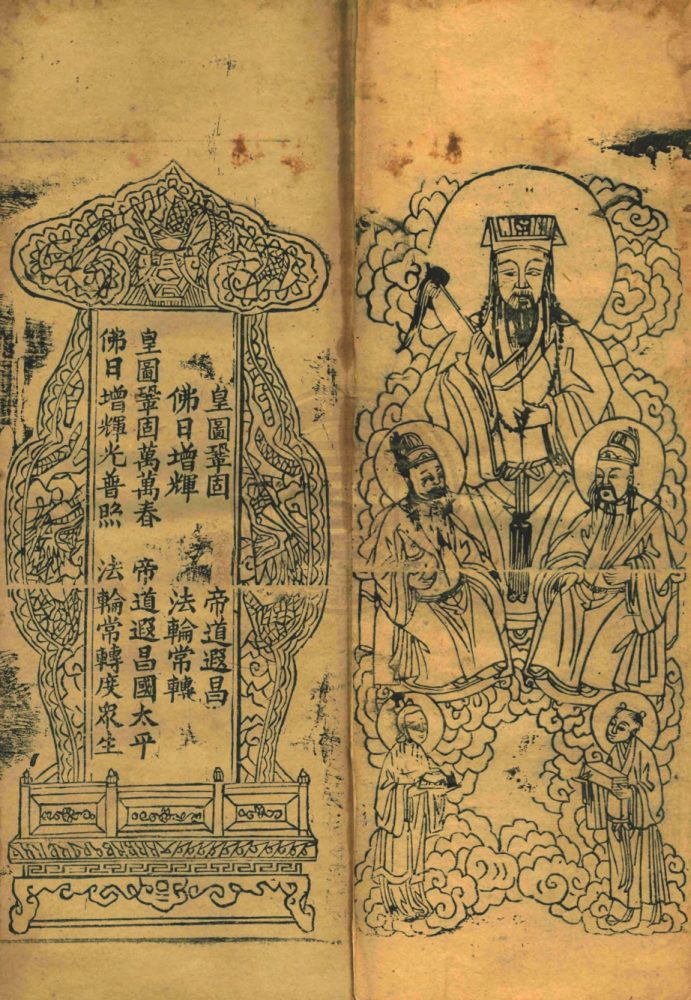 皇圖鞏固 帝道遐昌
佛日增輝 法輪常轉
皇圖鞏固萬萬春 帝道遐昌國太平
佛日增輝光普照 法輪常轉度眾生